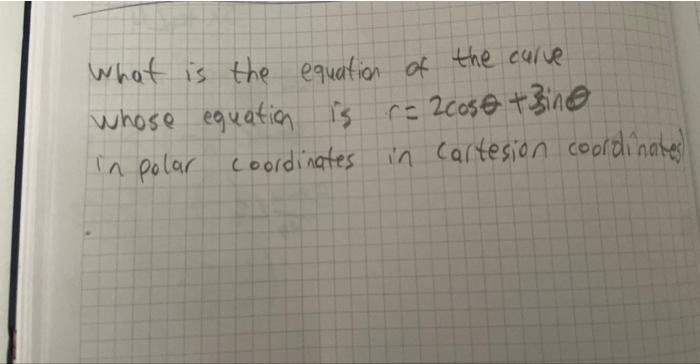 What is the equation of the curve
whose equation is r = 2cosθ + 3sinθ
in polar coordinates in cartesion coordinates